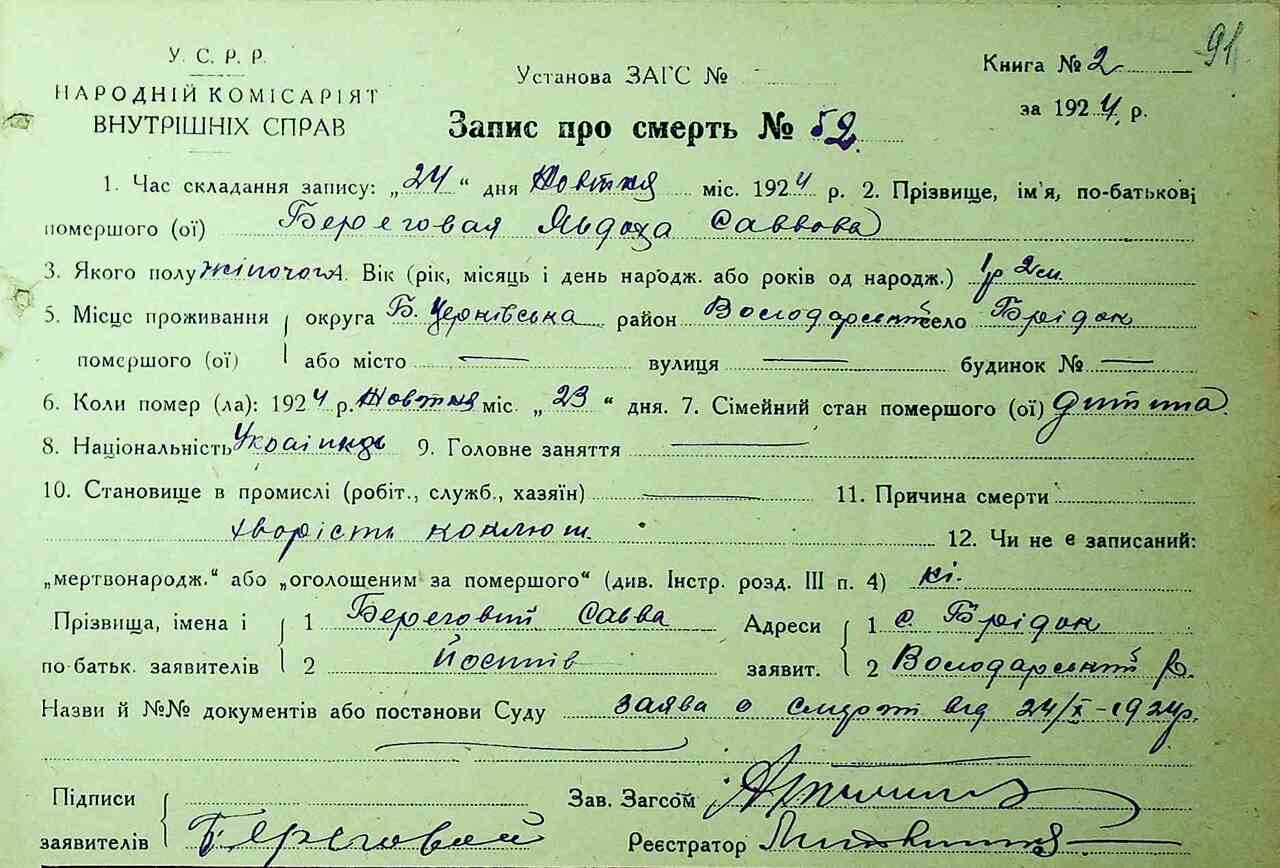 У. С. Р. Р.
НАРОДНІЙ КОМІСАРІЯТ
ВНУТРІШНІХ СПРАВ
Установа ЗАГС №
Запис про смерть № 52
Книга № 2
91
за 1924 р.
1. Час складання запису: „24“ дня Жовтня міс. 1924 р. 2. Прізвище, ім'я, по-батькові
помершого (ої) Береговая Явдоха Саввова
3. Якого полу жіночого 4. Вік (рік, місяць і день народж. або років од народж.) 1р 2м.
5. Місце проживання округа Б. Церківська район Володарський село Брідок
помершого (ої) або місто — вулиця — будинок № —
6. Коли помер (ла): 1924 р. Жовтня міс. „23“ дня. 7. Сімейний стан помершого (ої) дитина.
8. Національність Українць 9. Головне заняття —
10. Становище в промислі (робіт., служб., хазяїн) — 11. Причина смерти
хворість коклюш. 12. Чи не є записаний:
„мертвонародж.“ або „оголошеним за помершого“ (див. Інстр. розд. III п. 4) ні.
Прізвища, імена і 1 Береговий Савва Адреси 1 с. Брідок
по-батьк. заявителів 2 Йосипів заявит. 2 Володарський р.
Назви й №№ документів або постанови Суду заява о смерті від 24/X-1924р.
Підписи Зав. Загсом
заявителів Береговой Реєстратор